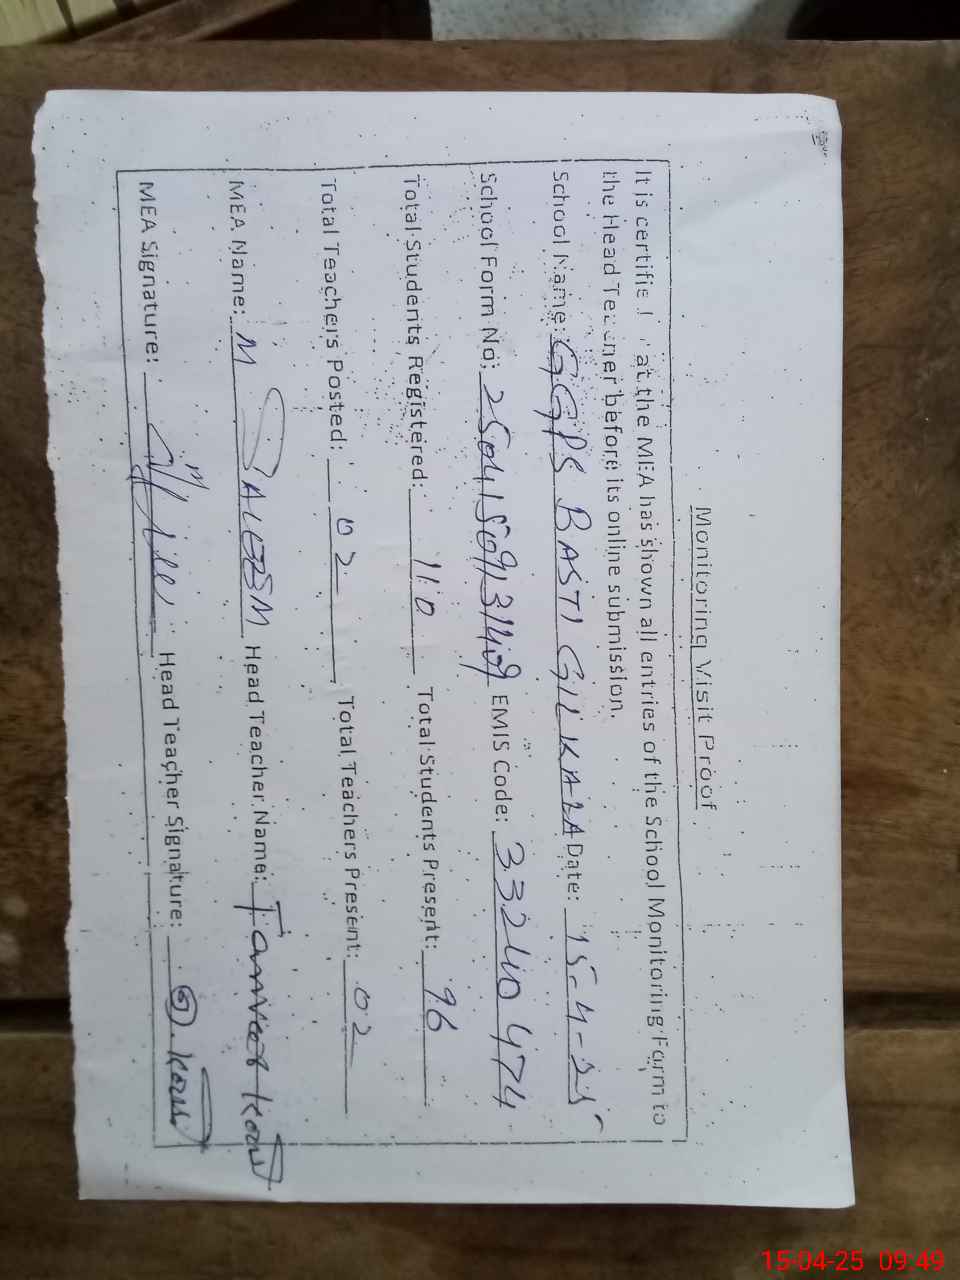 Monitoring Visit Proof
It is certified that the MEA has shown all entries of the School Monitoring Form to
the Head Teacher before its online submission.
School Name: GGPS BASTI GIL KALA Date: 15-4-25
School Form No: EMIS Code: 33240474
Total Students Registered: 110 Total Students Present: 96
Total Teachers Posted: 02 Total Teachers Present: 02
MEA Name: M SALEEM Head Teacher Name:
MEA Signature: Head Teacher Signature:
15-04-25 09:49